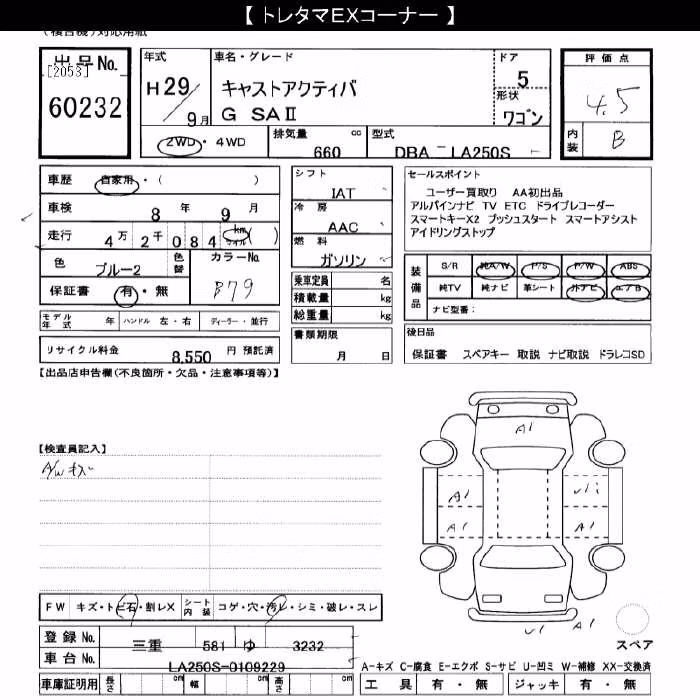 【 トレタマEXコーナー 】
出品No.
[2053]
60232
年式
H29/9月
車名・グレード
キャストアクティバ
G SAⅡ
ドア
5
形状
ワゴン
2WD・4WD
排気量 cc
660
型式
DBA - LA250S
評価点
4.5
内装
B
車歴 自家用・( )
車検 8 年 9 月
走行 4万2千084 km マイル ( )
色 ブルー2 色替 カラーNo. B79
保証書 有・無
モデル年式 年 ハンドル 左・右 ディーラー・並行
リサイクル料金 8,550 円 預託済
シフト
IAT
冷房
AAC
燃料
ガソリン
乗車定員 名
積載量 kg
総重量 kg
書類期限
月 日
セールスポイント
ユーザー買取り AA初出品
アルパインナビ TV ETC ドライブレコーダー
スマートキーX2 プッシュスタート スマートアシスト
アイドリングストップ
装備品
S/R 純A/W P/S P/W ABS
純TV 純ナビ 革シート 外ナビ エ/B
ナビ型番：
後日品
保証書 スペアキー 取説 ナビ取説 ドラレコSD
【出品店申告欄(不良箇所・欠品・注意事項等)】
【検査員記入】
A/Wキズ
A1
A1
A1
A1
U1
A1
スペア
FW キズ・トビ石・割レX シート内装 コゲ・穴・汚レ・シミ・破レ・スレ
登録No. 三重 581 ゆ 3232
車台No. LA250S-0109229
車庫証明用 長さ cm 幅 cm 高さ cm
A-キズ C-腐食 E-エクボ S-サビ U-凹ミ W-補修 XX-交換済
工具 有・無 ジャッキ 有・無